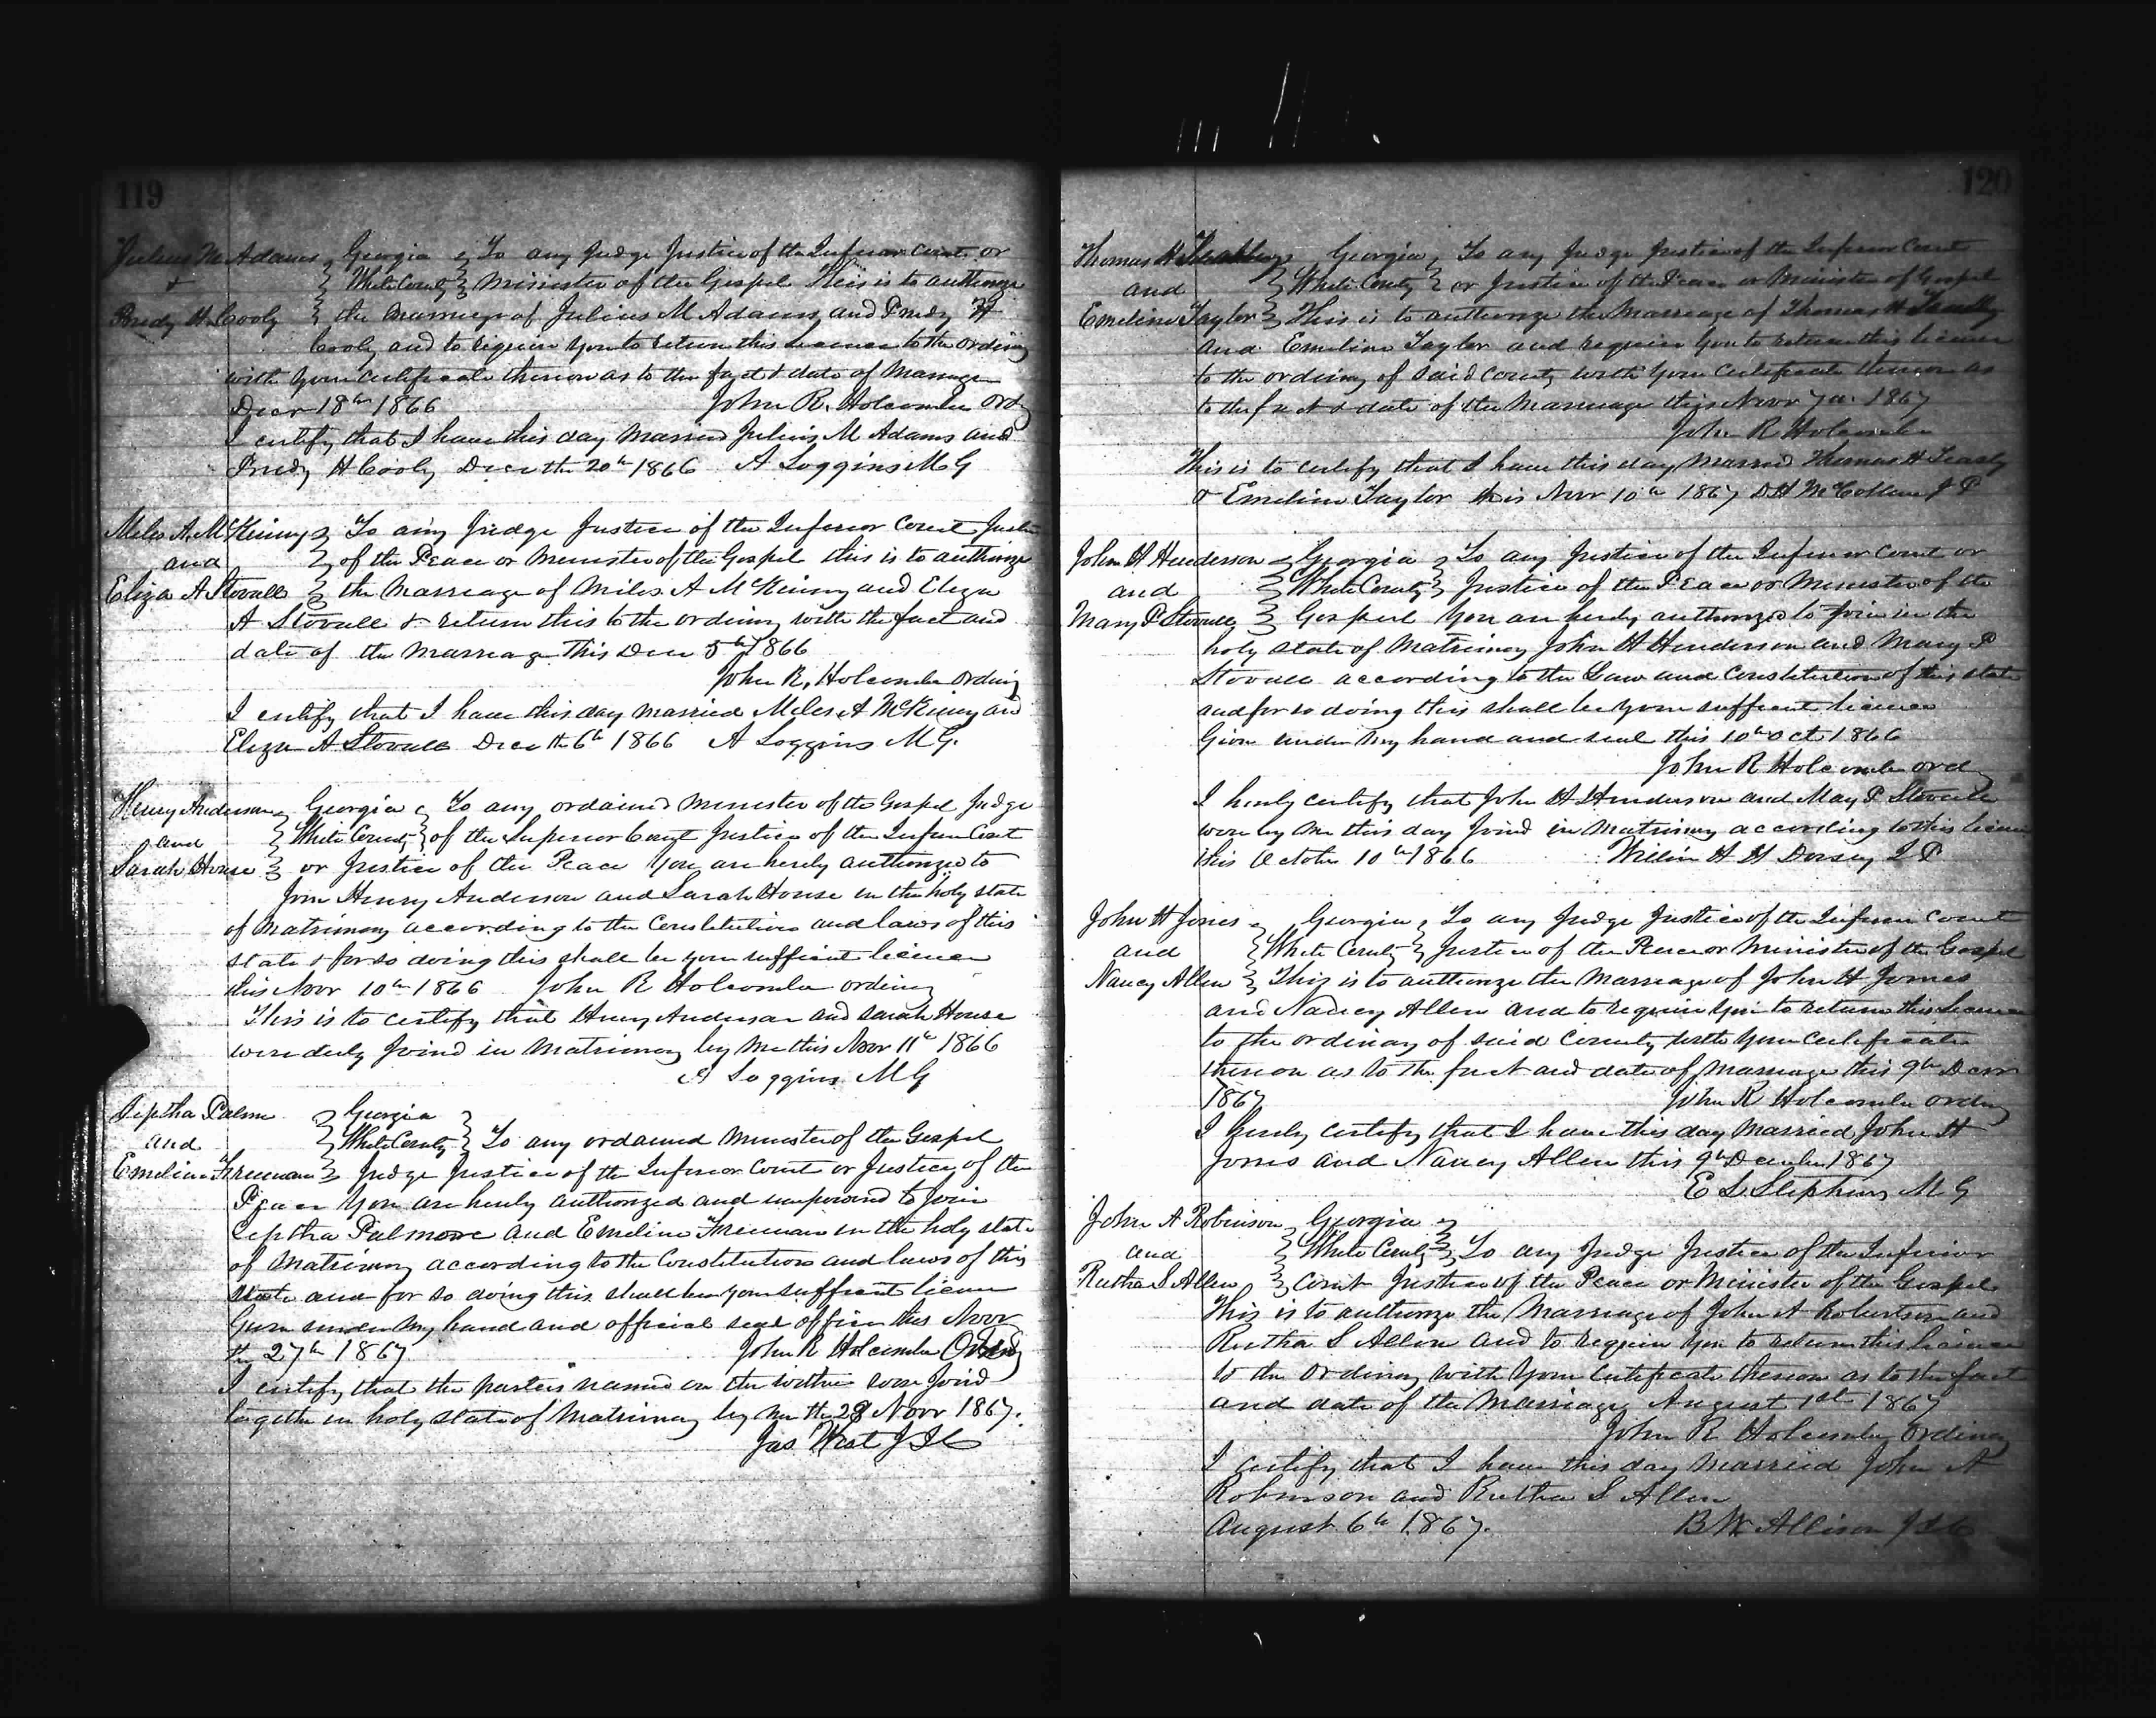 119
Julius M Adams Georgia To any Judge Justice of the Inferior Court or
& White County Minister of the Gospel This is to authorize
H Cooly the Marriage of Julius M Adams and H
Cooly and to require you to return this License to the ordinary
with your certificate thereon as to the fact & date of Marriage
Decr 18th 1866 John R. Holcombe Ordy
I certify that I have this day Married Julius M Adams and
H Cooly Decr the 20th 1866 A Loggins M G
Miles A. McKinny To any Judge Justice of the Inferior Court Justice
and of the Peace or Minister of the Gospel this is to authorize
Eliza A Stovall the Marriage of Miles A McKinny and Eliza
A Stovall & return this to the ordinary with the fact and
date of the Marriage This Dec 5th 1866
John R. Holcombe Ordinary
I certify that I have this day married Miles A McKinny and
Eliza A Stovall Dec the 6th 1866 A Loggins M G.
Henry Anderson Georgia To any ordained Minister of the Gospel Judge
and White County of the Superior Court Justice of the Inferior Court
Sarah House or Justice of the Peace You are hereby authorized to
Join Henry Anderson and Sarah House in the holy state
of Matrimony according to the Constitution and laws of this
state & for so doing this shall be your sufficient license
this Novr 10th 1866 John R Holcombe ordinary
This is to certify that Henry Anderson and Sarah House
were duly Joind in Matrimony by me this Novr 11th 1866
A Loggins M G
Jeptha Palm Georgia
and White County To any ordained Minister of the Gospel
Emeline Freeman Judge Justice of the Inferior Court or Justice of the
Peace You are hereby authorized and impowered to Join
Jeptha Palmore and Emeline Freeman in the holy state
of Matrimony according to the Constitution and laws of this
State and for so doing this shall be your sufficient licence
Given under my hand and official seal office this Novr
the 27th 1867 John R Holcombe Ordy
I certify that the parties named in the within were Joind
together in holy state of Matrimony by me the 28 Novr 1867.
Jas West J I C
120
Thomas H Georgia To any Judge Justice of the Inferior Court
and White County or Justice of the Peace or Minister of Gospel
Emeline Taylor This is to authorize the Marriage of Thomas H
and Emeline Taylor and require you to return this licence
to the ordinary of said County with your certificate thereon as
to the fact & date of the Marriage this Novr 7th 1867
John R Holcombe
This is to certify that I have this day Married Thomas H Teasly
& Emeline Taylor this Novr 10th 1867 D H McCollum J P
John H Henderson Georgia To any Justice of the Inferior Court or
and White County Justice of the Peace or Minister of the
Mary P Stovall Gospel You are hereby authorized to Join in the
holy state of Matrimony John H Henderson and Mary P
Stovall according to the Law and Constitution of this state
and for so doing this shall be your sufficent licence
Given under my hand and seal this 10th Oct 1866
John R Holcombe ord
I herby certify that John H Henderson and Mary P Stovall
were by me this day Joind in Matrimony according to this licence
this October 10th 1866 H H Dorsey J P
John H Jones Georgia To any Judge Justice of the Inferior Court
and White County Justice of the Peace or Minister of the Gospel
Nancy Allen This is to authorize the Marriage of John H Jones
and Nancy Allen and to require you to return this License
to the ordinary of said County with your certificate
thereon as to the fact and date of Marriage this 9th Decr
1867 John R Holcombe ordiny
I herby certify that I have this day Married John H
Jones and Nancy Allen this 9th December 1867
E S Stephens M G
John A Robinson Georgia
and White County To any Judge Justice of the Inferior
Rutha S Allen Court Justice of the Peace or Minister of the Gospel
This is to authorize the Marriage of John A Robertson and
Rutha S Allen and to require you to return this licence
to the Ordinary with your certificate thereon as to the fact
and date of the Marriage August 1st 1867
John R Holcombe Ordinary
I certify that I have this day Married John A
Robinson and Rutha S Allen
August 6th 1867. B W Allison J I C